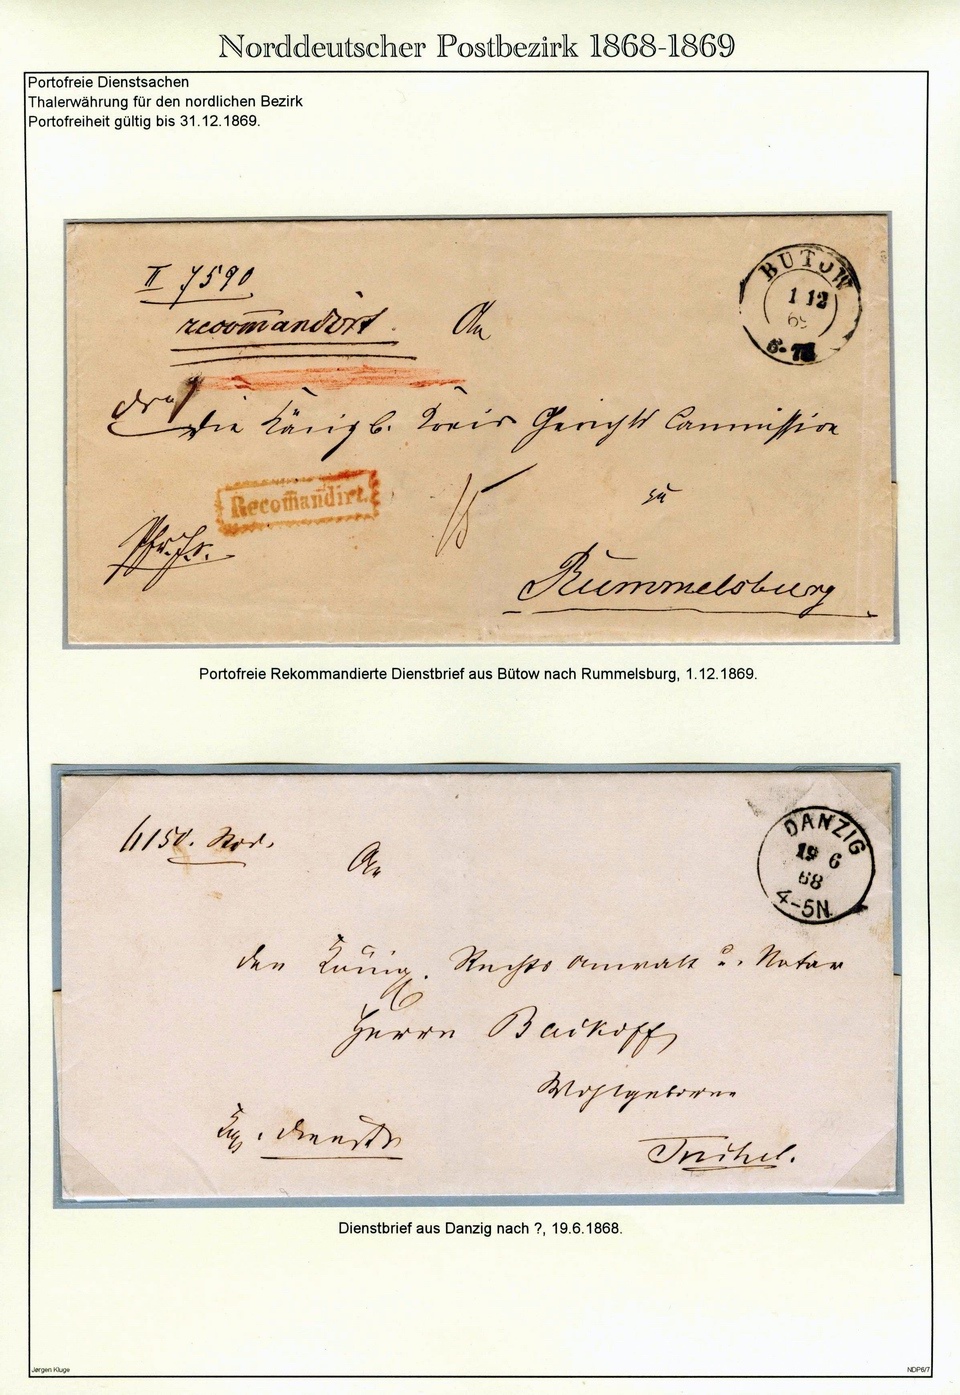 Norddeutscher Postbezirk 1868-1869
Portofreie Dienstsachen
Thalerwährung für den nordlichen Bezirk
Portofreiheit gültig bis 31.12.1869.
II 7590
recom̄andirt.
An
BUTOW
1 12
69
die Königl. Kreis Gerichts Commission
Recom̄andirt.
zu
Rummelsburg
Portofreie Rekommandierte Dienstbrief aus Bütow nach Rummelsburg, 1.12.1869.
An
DANZIG
19 6
68
4-5N.
den König. Rechts Anwalt u. Notar
Herrn
Wohlgeboren
Dienstbrief aus Danzig nach ?, 19.6.1868.
Jørgen Kluge
NDP6/7